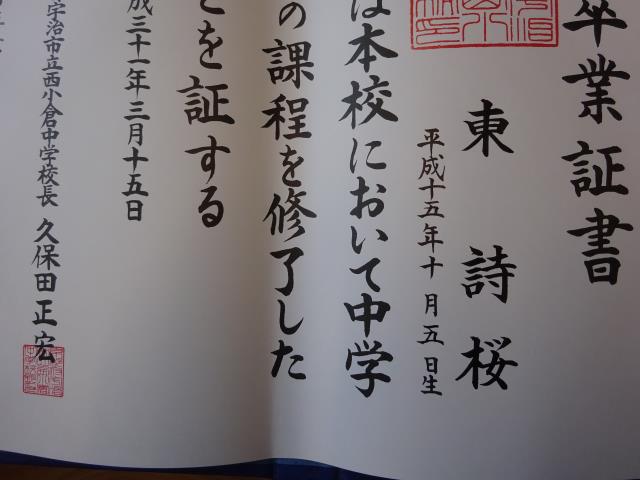 卒業証書
東 詩桜
平成十五年十月五日生
は本校において中学
の課程を修了した
とを証する
成三十一年三月十五日
宇治市立西小倉中学校長 久保田正宏